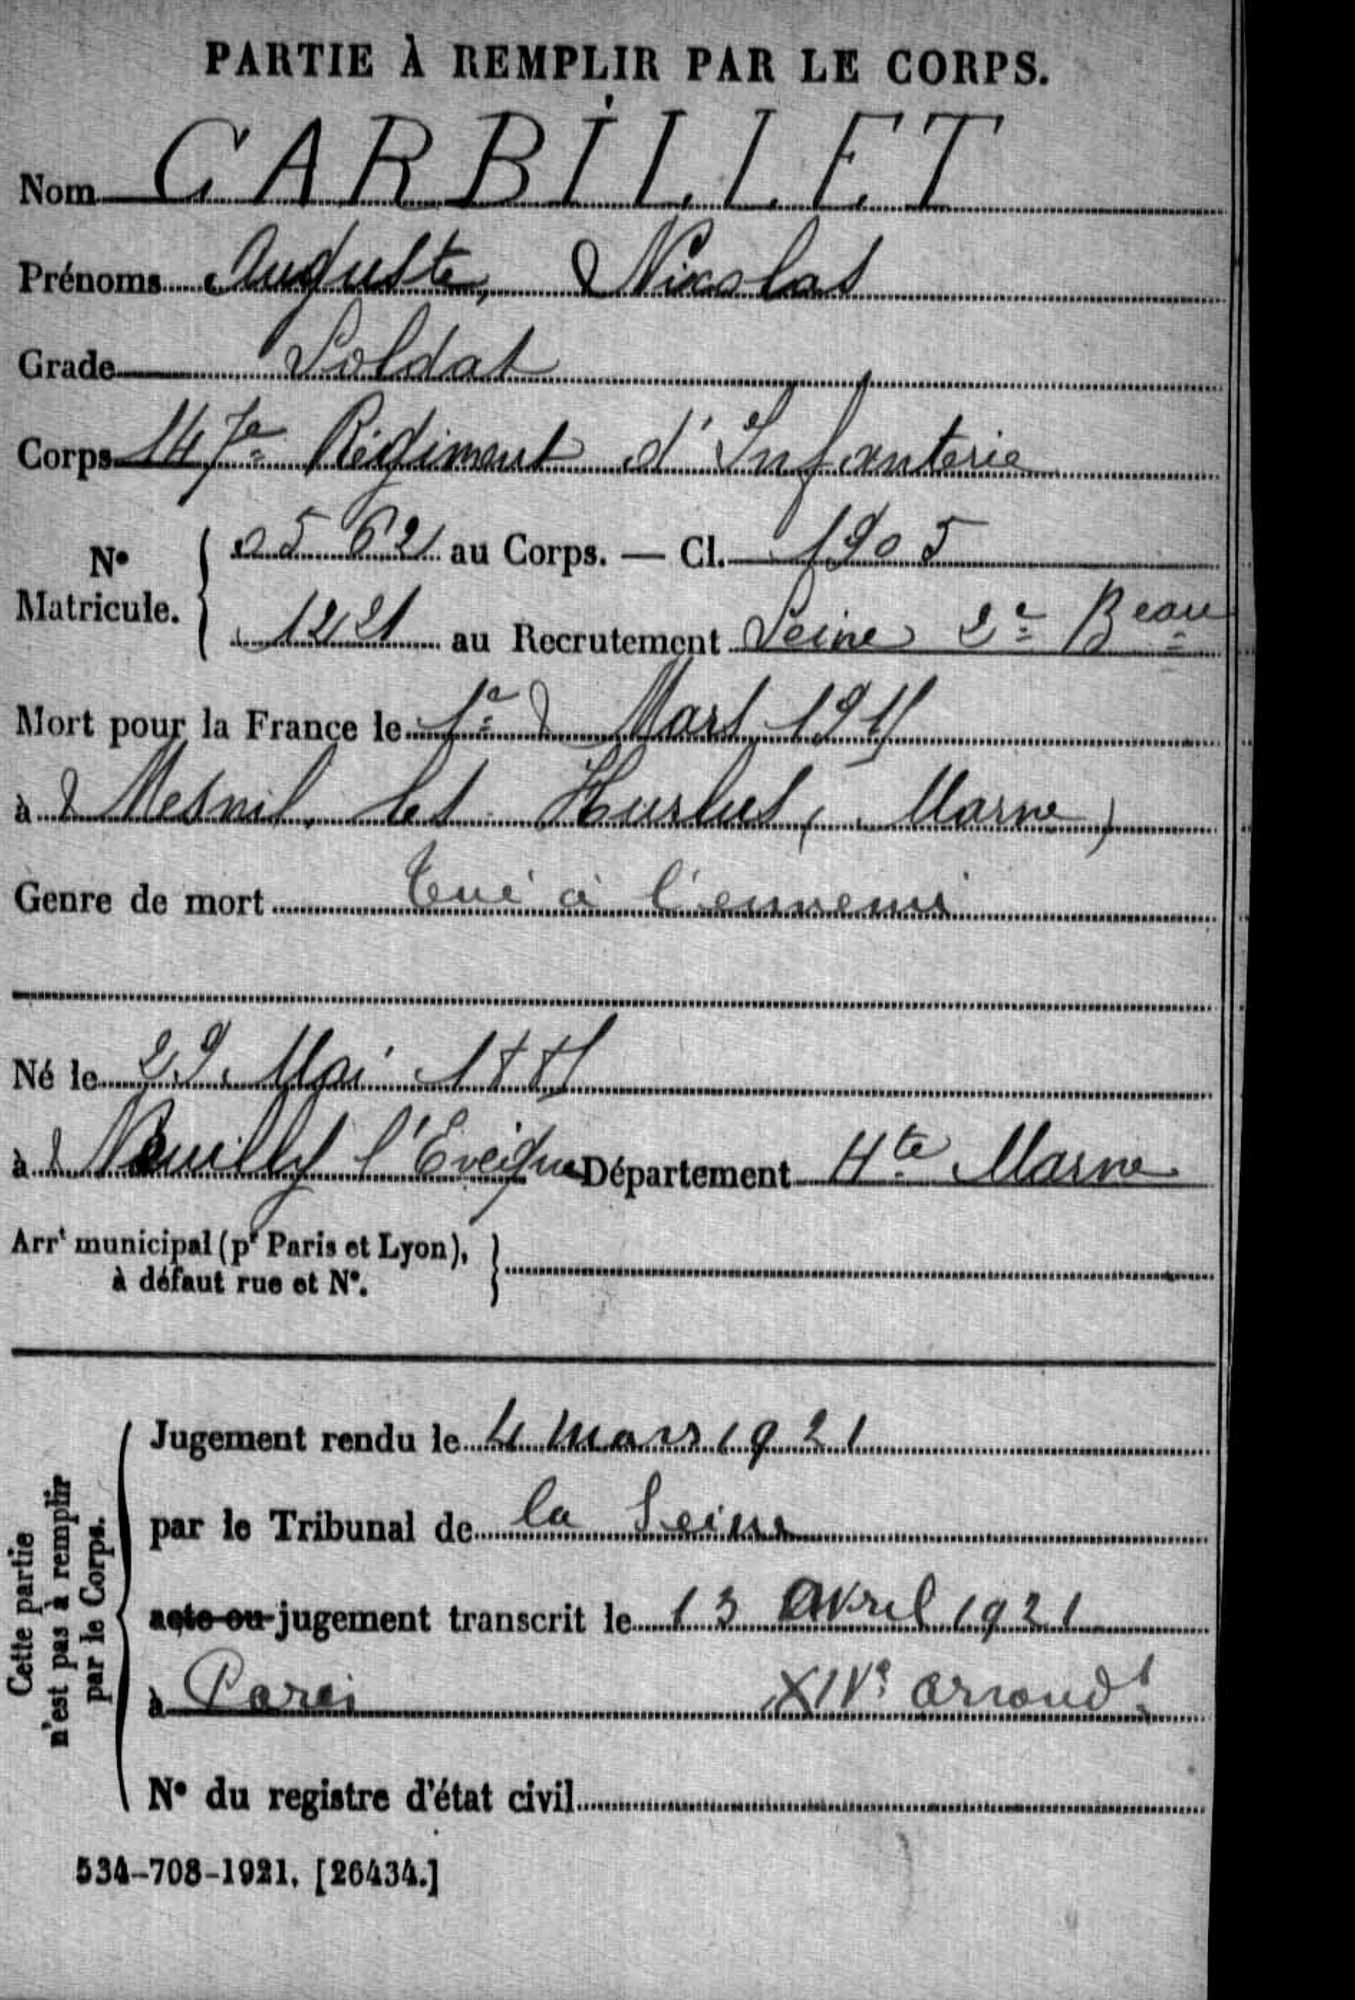 PARTIE À REMPLIR PAR LE CORPS.
Nom CARBILLET
Prénoms Auguste, Nicolas
Grade Soldat
Corps 147e Régiment d'Infanterie
N° Matricule. { 05621 au Corps. — Cl. 1905
1221 au Recrutement Seine 2e Beau
Mort pour la France le 1e Mars 1915
à Mesnil les Hurlus, (Marne)
Genre de mort Tué à l'ennemi
Né le 29 Mai 1885
à Neuilly l'Evêque Département Hte Marne
Arrt municipal (pr Paris et Lyon), à défaut rue et N°. }
Cette partie n'est pas à remplir par le Corps.
Jugement rendu le 4 mars 1921
par le Tribunal de la Seine
acte ou jugement transcrit le 13 Avril 1921
à Paris XIVe arrondt
N° du registre d'état civil
534-708-1921. [26434.]